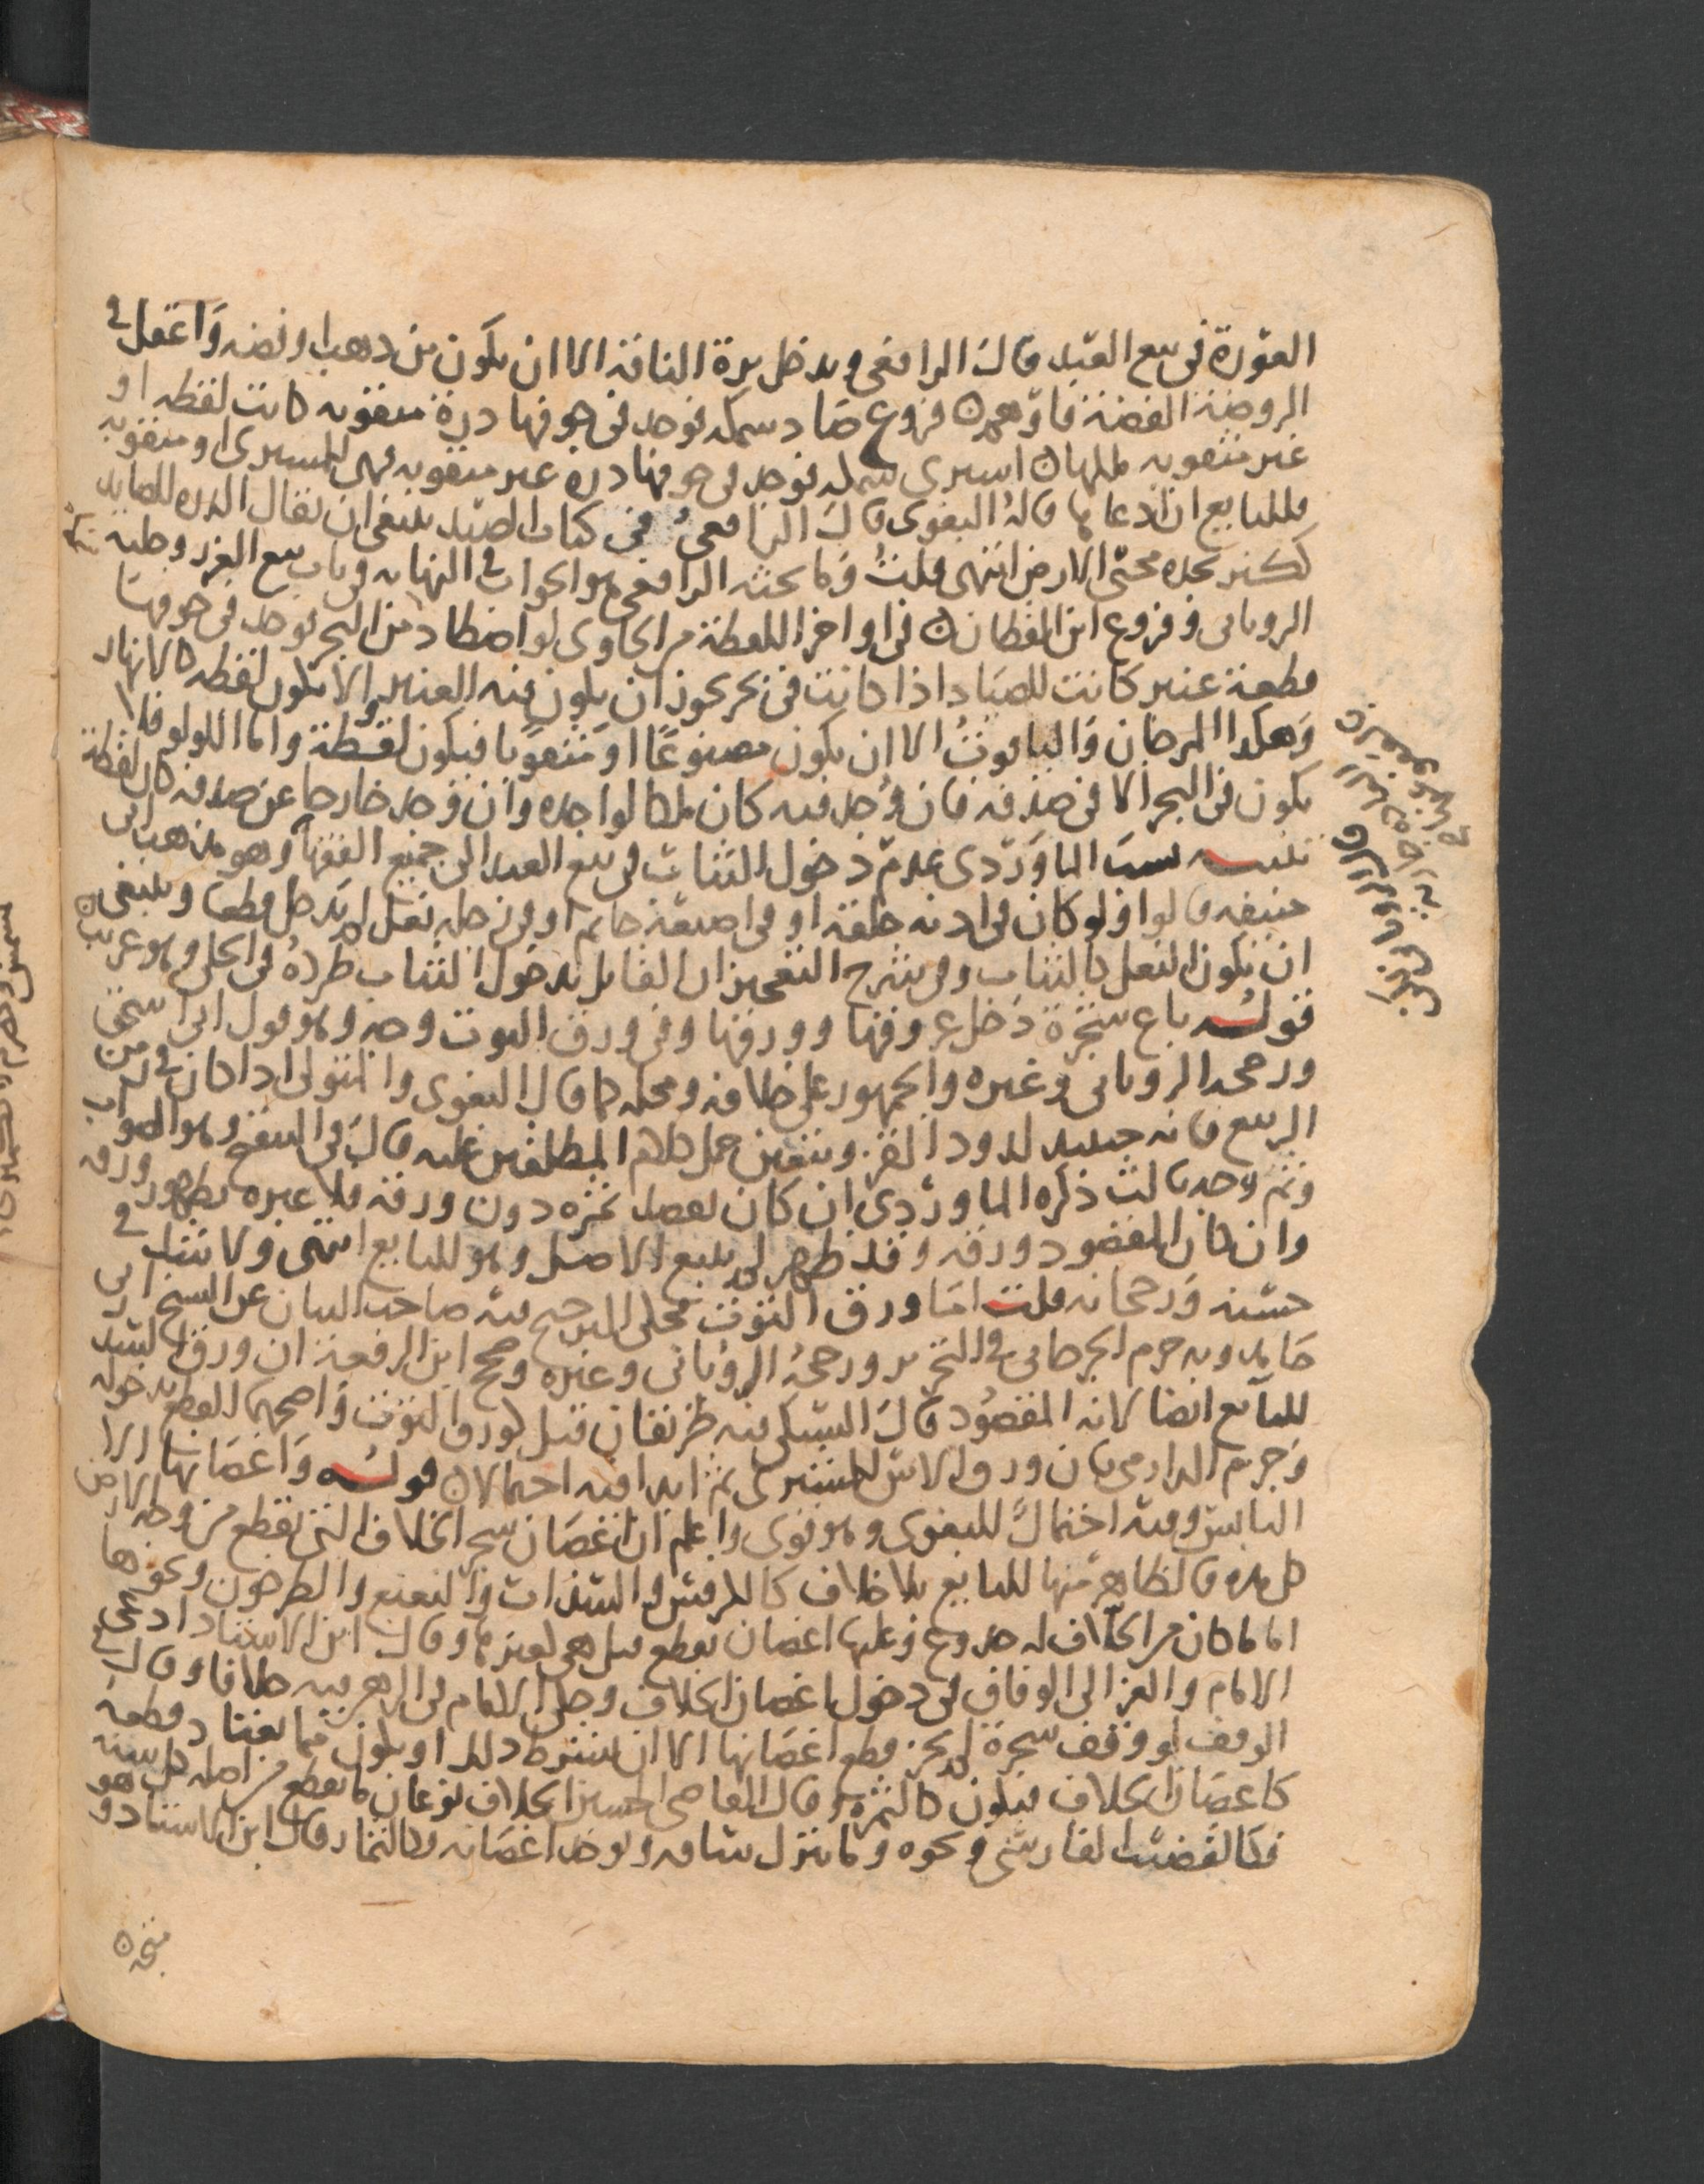 العورة في بيع العبد قال الرافعي ويدخل برة الناقة الا ان يكون من ذهب او فضة واغفل في
الروضة الفضة فاوهم ن فروع صاد سمكة فوجد في جوفها درة مثقوبة كانت لقطة او
غير مثقوبة فلها ن اشترى سمكة فوجد في جوفها درة غير مثقوبة فهي للمشتري او مثقوبة
فللبايع ان ادعاها قاله البغوي قال الرافعي في كتاب الصيد ينبغي ان يقال الدرة للصايد
لكنز يجده محيي الارض انتهى قلت وما بحثه الرافعي هو الجواب في النهاية في باب بيع الغرر وحلية
الروياني وفروع ابن القطان ن في اواخر اللقطة من الحاوي لو اصطاد من البحر فوجد في جوفها
قطعة عنبر كانت للصياد اذا كانت في بحر يجوز ان يكون فيه العنبر والا يكون لقطة كالانهار
وهكذا المرجان والياقوت الا ان يكون مصنوعا او مثقوبا فيكون لقطة واما اللولو فلا
يكون في البحر الا في صدفه فان وجد فيه كان ملكا لواجده وان وجد خارجا عن صدفه كان لقطة
تنبيه نسب الماوردي عدم دخول الثياب في بيع العبد الى جميع الفقها وهو مذهب ابي
حنيفة قالوا ولو كان في اذنه حلقة او في اصبعه خاتم او في رجله نعل لم يدخل قطعا وينبغي
ان يكون النعل كالثياب وفي شرح التعجيز ان القايل بدخول الثياب طرده في الحلي وهو غريب ن
قوله باع شجرة دخل عروقها وورقها وفي ورق التوت وجه وهو قول ابي اسحق
ورجحه الروياني وغيره والجمهور على خلافه ومحله كما قال البغوي والمتولي اذا كان في زمن
الربيع فانه حينيذ لدود القز ويتعين حمل كلام المطلقين عليه قال في التنقيح وهو الصواب
وثم وجه ثالث ذكره الماوردي ان كان يقصد ثمره دون ورقه فلا عبرة بظهور ورقه
وان كان المقصود ورقه وقد ظهر لم يتبع الاصل وهو للبايع انتهى ولا شك في
حسنه ورجحانه قلت اما ورق التوت فحكى الترجيح فيه صاحب البيان عن الشيخ ابي
حامد وبه جزم الجرجاني في التحرير ورجحه الروياني وغيره وصحح ابن الرفعة ان ورق السدر
للبايع ايضا لانه المقصود قال السبكي فيه طريقان قيل كورق التوت واصحهما القطع بدخوله
وجزم الدارمي بان ورق الاس للمشتري ثم ابدا فيه احتمالا ن قوله واغصانها الا
اليابس وفيه احتمال للبغوي وهو قوي واعلم ان اغصان شجر الخلاف التي تقطع من وجه الارض
كل مرة فالظاهر منها للبايع بلا خلاف كالكرفس والسذاب والنعنع والطرخون ونحوها
اما ما كان من الخلاف له جذوع وعليها اغصان تقطع قيل هي كغيرها وقال ابن الاستاذ ادعى
الامام والغزالي الوفاق في دخول اغصان الخلاف وحكى الامام في الرهن فيه خلافا وقال في
الوقف لو وقف شجرة لم يجز قطع اغصانها الا ان يشترط ذلك او يكون مما يعتاد قطعه
كاغصان الخلاف فيكون كالثمرة وقال القاضي الحسين الخلاف نوعان ما يقطع من اصله كل سنة
فكالقضب الفارسي ونحوه وما يترك ساقه ويوخذ اغصانه فكالثمار قال ابن الاستاذ و هو